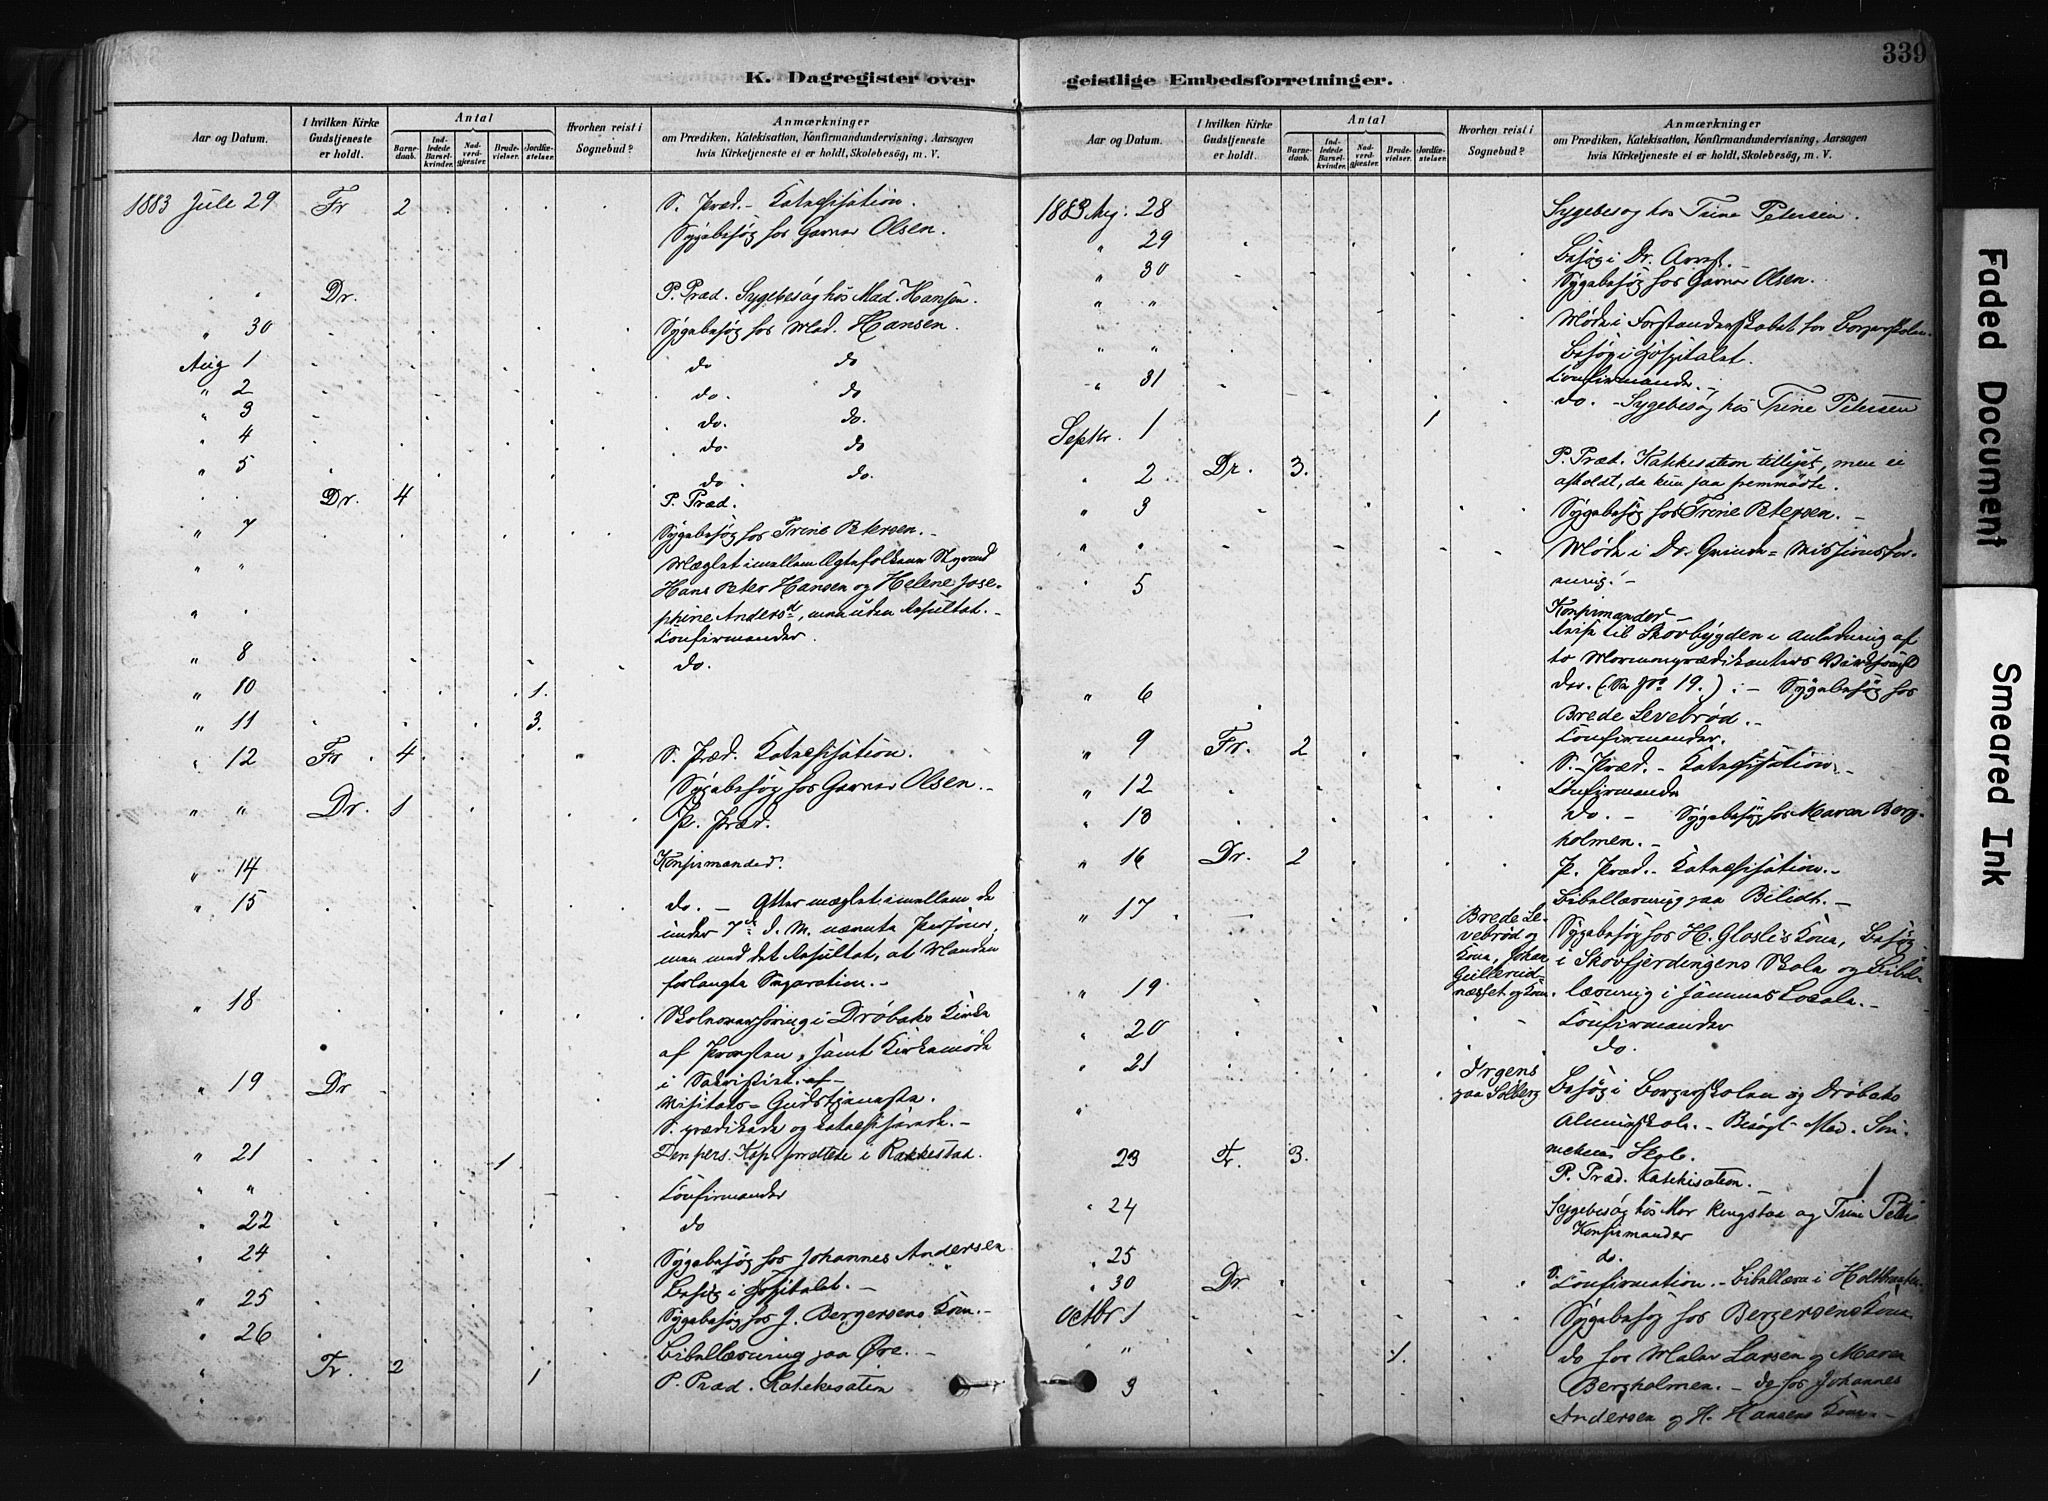 339
K. Dagregister over
Aar og Datum.
I hvilken Kirke Gudstjeneste er holdt.
Antal
Barnedaab.
Indledede Barselkvinder.
Nadverdgjester.
Brudevielser.
Jordfæstelser.
Hvorhen reist i Sognebud?
Anmærkninger
om Prædiken, Katekisation, Konfirmandundervisning, Aarsagen
hvis Kirketjeneste ei er holdt, Skolebesøg, m. V.
1883 Juli 29 Fr 2 S. Præd. - Katechisation.
Sygebesøg hos Garver Olsen.
" " Dr. P. Præd. Sygebesøg hos Mad. Hansen.
" 30 Sygebesøg hos Mad. Hansen.
Aug 1 do do
" 2 do. do
" 3 do. do.
" 4 do do
" 5 do do.
Dr. 4 P. Præd.
" 7 Sygebesøg hos Trine Petersen. -
" " Mæglet imellem Ægtefolkene
Hans Peter Hansen og Helene Jose-
phine Andersd, men uden Resultat. -
" " Confirmander.
" 8 do.
" 10 1.
" 11 3.
" 12 Fr 4 S. Præd. Katechisation.
Sygebesøg hos Garver Olsen. -
" " Dr. 1 P. Præd.
" 14 Konfirmander.
" 15 do. - Atter mæglet imellem de
under 7de d. M. nævnte Personer,
men med det Resultat, at Manden
forlangte Separation. -
" 18 i Drøbaks Kirke
af Provsten, samt Kirkemøde
i Sakristiet.
" 19 Dr Visitats-Gudstjeneste.
S. prædikede og katechiserede. -
" 21 1 Den pers. Kap. forrettede i Rakkestad.
" " Confirmander
" 22 do
" 24 Sygebesøg hos Johannes Andersen
Besøg i Hospitalet. -
" 25 Sygebesøg hos J. Bergersens Kone. -
" 26 Bibellæsning paa Øre. -
" Fr. 2 1 P. Præd. Katekisation
geistlige Embedsforretninger.
Aar og Datum.
I hvilken Kirke Gudstjeneste er holdt.
Antal
Barnedaab.
Indledede Barselkvinder.
Nadverdgjester.
Brudevielser.
Jordfæstelser.
Hvorhen reist i Sognebud?
Anmærkninger
om Prædiken, Katekisation, Konfirmandundervisning, Aarsagen
hvis Kirketjeneste ei er holdt, Skolebesøg, m. V.
1883 Aug. 28 Sygebesøg hos Trine Petersen.
" 29 Besøg i Dr. Arrest.
" 30 Sygebesøg hos Garver Olsen.
" " Møde i Forstanderskabet for Borgerskolen.
" " Besøg i Hospitalet.
" 31 Confirmander. -
Septbr. 1 1 do. - Sygebesøg hos Trine Petersen
" 2 Dr. 3. P. Præd. Katekisation tillyst, men ei
afholdt, da kun faa fremmødte.
" 3 Sygebesøg hos Trine Petersen. -
" " Møde i Dr. Qvinde-Missionsfor-
ening. -
" 5 Konfirmander -
Reise til Skovbygden i Anledning af
to Mormonprædikanters
der. (Se No 19.) - Sygebesøg hos
Brede Levebrød. -
" 6 Confirmander.
" 9 Fr. 2 S. - Præd. - Katechisation. -
" 12 Confirmander
" 13 do. - Sygebesøg hos Maren Berg-
holmen. -
" 16 Dr. 2 P. Præd. - Katechisation. -
Bibellæsning paa Bilidt. -
" 17 Brede Le-
vebrød og
Kone, Johan
Gullerud-
næsset og Kone. Sygebesøg hos H. Glasli's Kone, Besøg
i Skovfjerdingens Skole og Bibel-
læsning i samme Locale. -
" 19 Confirmander
" 20 do.
" 21 Irgens
paa Solberg Besøg i Borgerskolen og Drøbaks
Almueskole. - Besøgt Mad. Sør-
nehens Skole.
" 23 Fr. 3. P. Præd. Katekisation. -
" 24 Sygebesøg hos Mor Ringstae og Trine Peters
Konfirmander
" 25 do.
" 30 Dr S. Confirmation. - Bibellæsn. i
Octbr 1 Sygebesøg hos Bergersens Kone
" " 1. do hos Maler Larsen og Maren
Bergholmen. - do hos Johannes
" 3 Andersen og H. Hansens Kone -
Faded Document
Smeared Ink